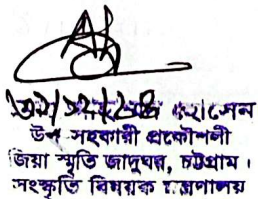 হোসেন
উপ সহকারী প্রকৌশলী
জিয়া স্মৃতি জাদুঘর, চট্টগ্রাম।
সংস্কৃতি বিষয়ক মন্ত্রণালয়